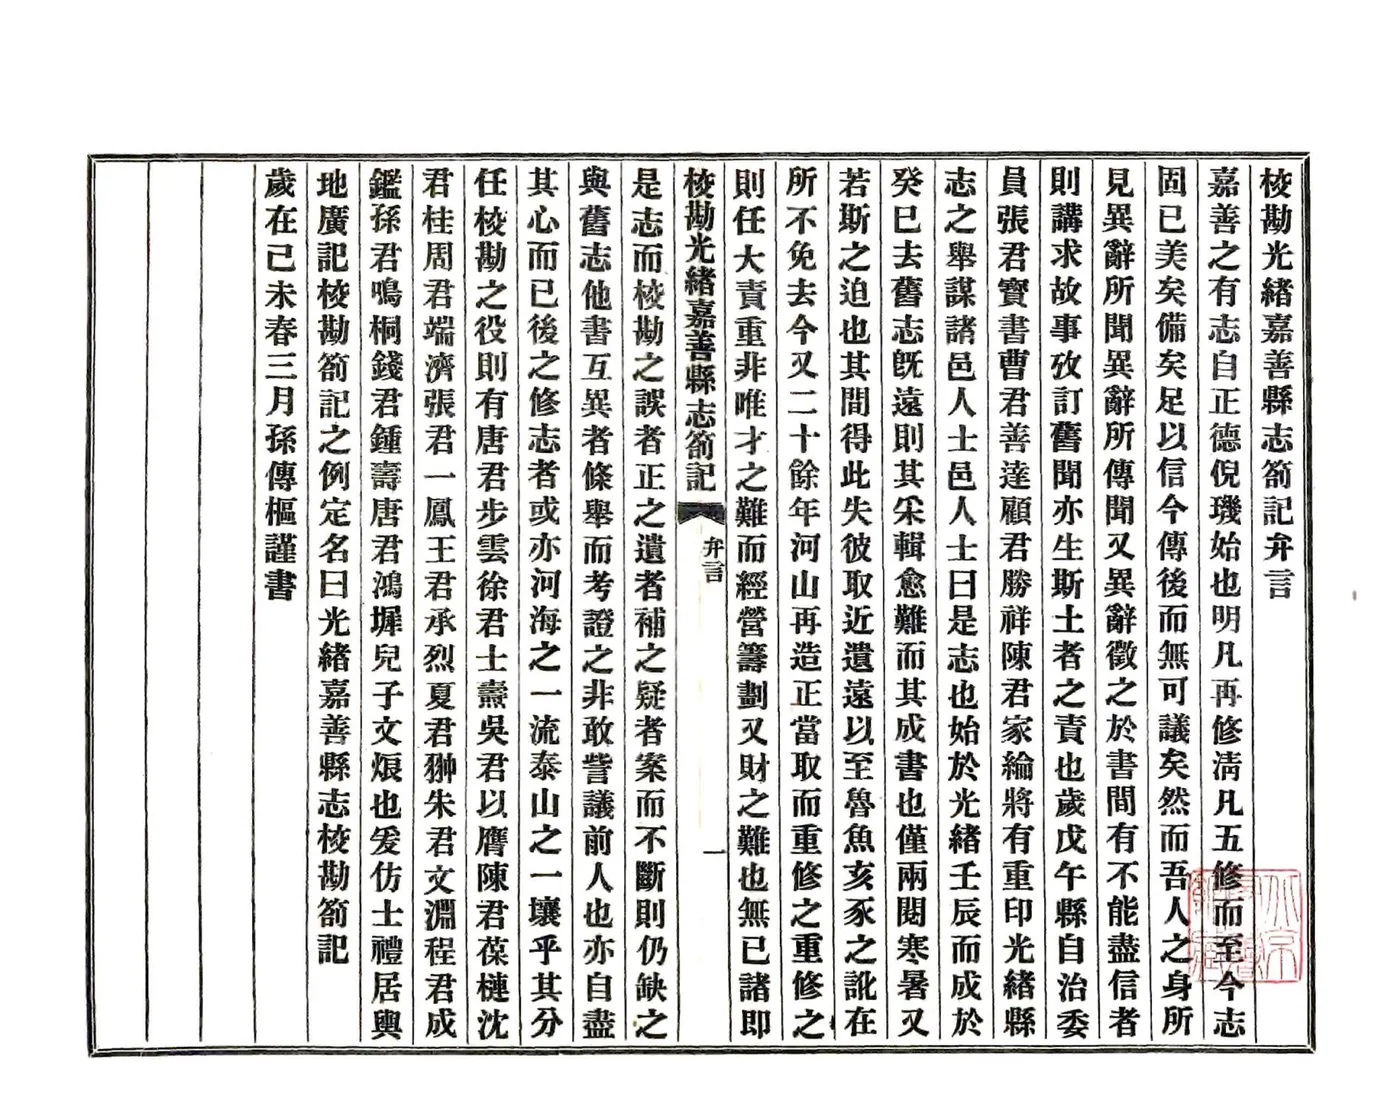 校勘光緒嘉善縣志劄記弁言
嘉善之有志自正德倪璣始也明凡再修淸凡五修而至今志
固已美矣備矣足以信今傳後而無可議矣然而吾人之身所
見異辭所聞異辭所傳聞又異辭徵之於書間有不能盡信者
則講求故事攷訂舊聞亦生斯土者之責也歲戊午縣自治委
員張君寶書曹君善達顧君勝祥陳君家綸將有重印光緒縣
志之舉謀諸邑人士邑人士曰是志也始於光緒壬辰而成於
癸巳去舊志旣遠則其采輯愈難而其成書也僅兩閱寒暑又
若斯之迫也其間得此失彼取近遺遠以至魯魚亥豕之訛在
所不免去今又二十餘年河山再造正當取而重修之重修之
則任大責重非唯才之難而經營籌劃又財之難也無已諸卽
校勘光緒嘉善縣志劄記
弁言
一
是志而校勘之誤者正之遺者補之疑者案而不斷則仍缺之
與舊志他書互異者條舉而考證之非敢訾議前人也亦自盡
其心而已後之修志者或亦河海之一流泰山之一壤乎其分
任校勘之役則有唐君步雲徐君士燾吳君以膺陳君葆槤沈
君桂周君端濟張君一鳳王君承烈夏君翀朱君文淵程君成
鑑孫君鳴桐錢君鍾壽唐君鴻墀兒子文烺也爰仿士禮居輿
地廣記校勘劄記之例定名曰光緒嘉善縣志校勘劄記
歲在己未春三月孫傳樞謹書